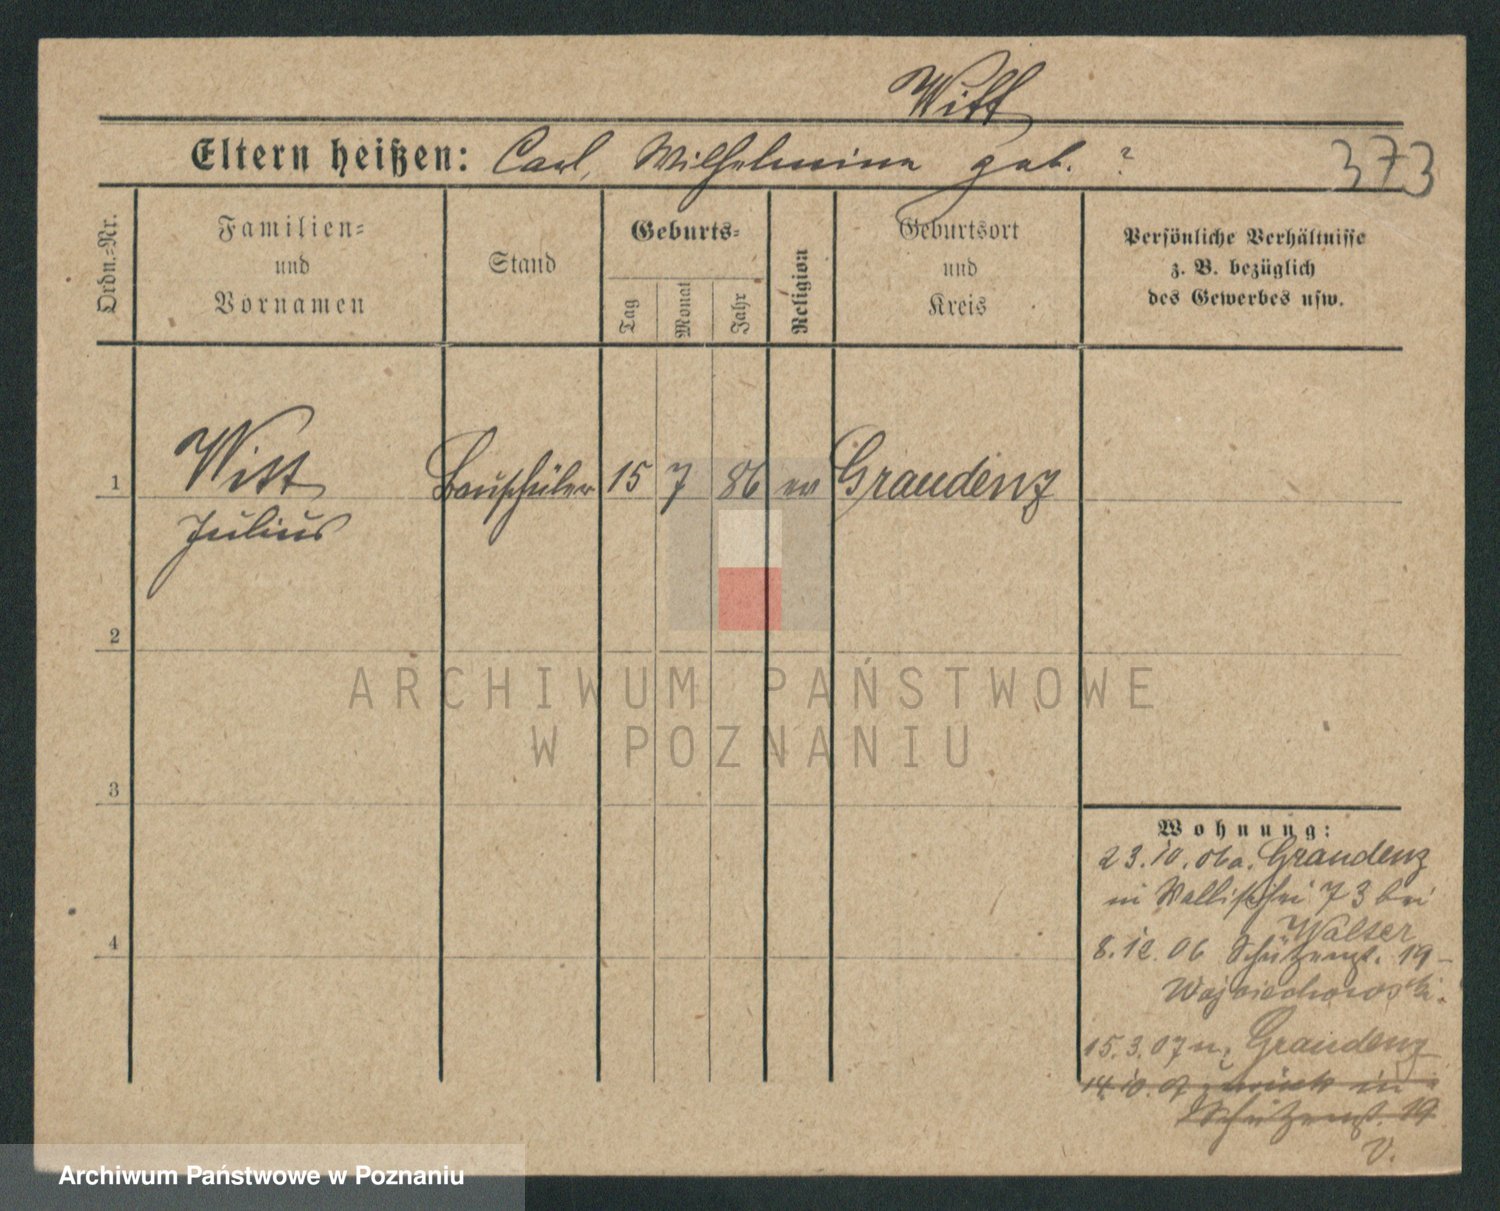 Witt
Eltern heißen: Carl, Wilhelmine geb. ?
373
Ordn.=Nr.
Familien=
und
Vornamen
Stand
Geburts=
Tag
Monat
Jahr
Religion
Geburtsort
und
Kreis
Persönliche Verhältnisse
z. B. bezüglich
des Gewerbes usw.
1 Witt Bauschüler 15 7 86 ev Graudenz
Julius
2
3
4
Wohnung:
23.10.06 a. Graudenz
in Wallischei 73 bei
Walter
8.12.06 Schützenst. 19 -
Wojciechowski.
15.3.07 n. Graudenz
14.10.07 zurück in
Schützenst. 19
V.
ARCHIWUM PAŃSTWOWE
W POZNANIU
Archiwum Państwowe w Poznaniu